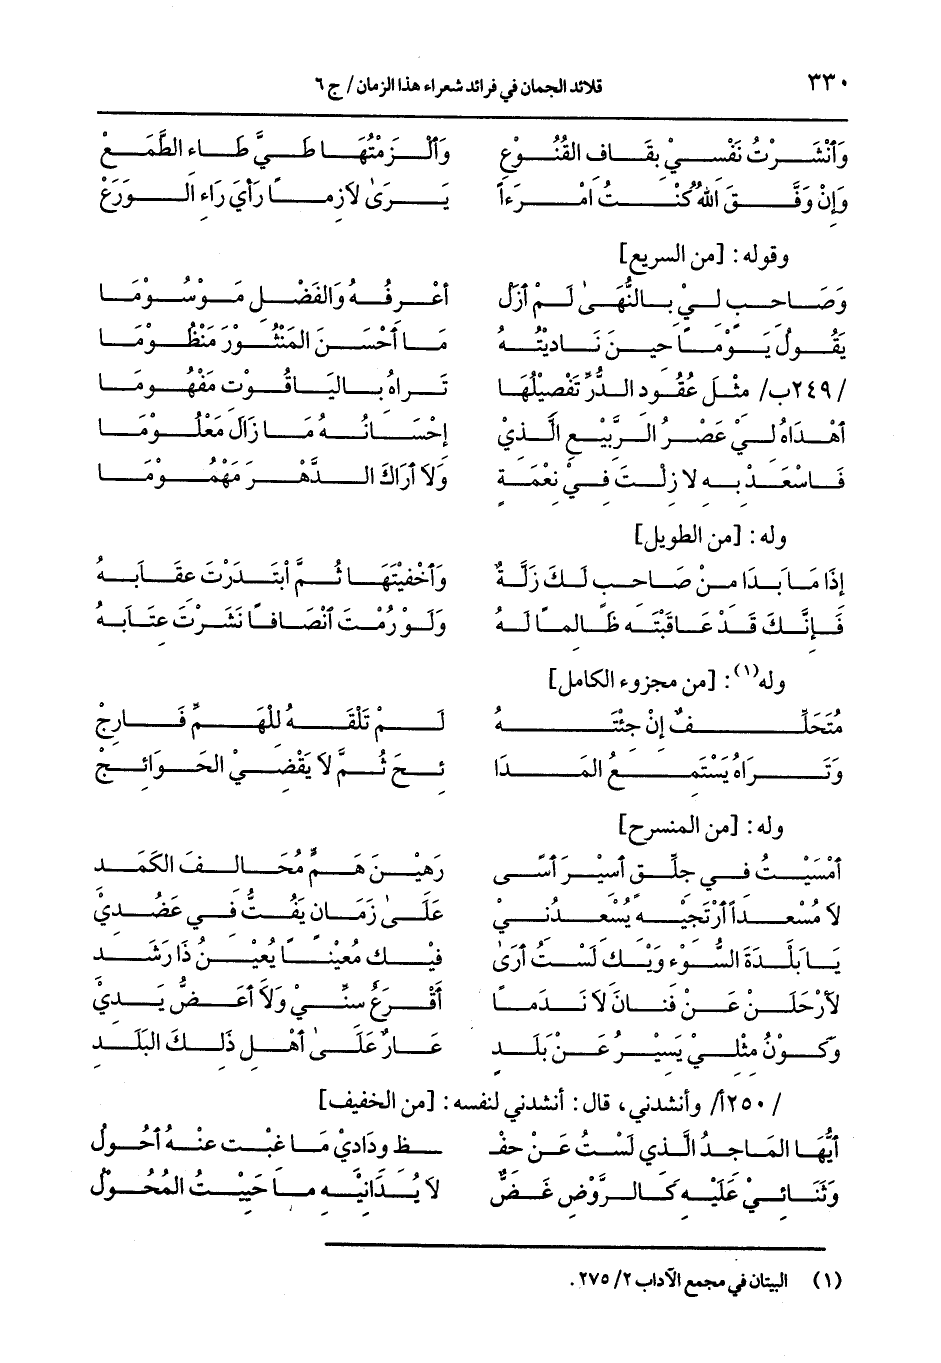 ٣٣٠ قلائد الجمان في فرائد شعراء هذا الزمان / ج ٦
وَأنْشَرْتُ نَفْسِيْ بِقَافِ القُنُوْعِ وَألْزَمْتُهَا طَيَّ طَاءِ الطَّمَعْ
وَإنْ وَفَّقَ اللهُ كُنْتُ امْرَءاً يَرَىٰ لازِماً رَأيَ رَاءِ الوَرَعْ
وقوله: [من السريع]
وَصَاحِبٍ لِيْ بِالنُّهَىٰ لَمْ أزَلْ أعْرِفُهُ وَالفَضْلِ مَوْسُوْمَا
يَقُولُ يَوْماً حِينَ نَادَيْتُهُ مَا أحْسَنَ المَنْثُوْرَ مَنْظُوْمَا
/٢٤٩ب/ مِثْلَ عُقُودِ الدُّرِّ تَفْصِيْلُهَا تَراهُ بِاليَاقُوْتِ مَفْهُوْمَا
أهْدَاهُ لِيْ عَصْرُ الرَّبِيْعِ الَّذِيْ إحْسَانُهُ مَا زَالَ مَعْلُوْمَا
فَاسْعَدْ بِهِ لا زِلْتَ فِيْ نِعْمَةٍ وَلاَ أرَاكَ الدَّهْرَ مَهْمُوْمَا
وله: [من الطويل]
إذَا مَا بَدَا مِنْ صَاحِبٍ لَكَ زَلَّةٌ وَأخْفَيْتَهَا ثُمَّ ابْتَدَرْتَ عِقَابَهُ
فَإنَّكَ قَدْ عَاقَبْتَهُ ظَالِماً لَهُ وَلَوْ رُمْتَ انْصَافاً نَشَرْتَ عِتَابَهُ
وله(١): [من مجزوء الكامل]
مُتَخَلِّفٌ إنْ جِئْتَهُ لَمْ تَلْقَهُ لِلْهَمِّ فَارِجْ
وَتَرَاهُ يَسْتَمِعُ المَدَا ئِحَ ثُمَّ لاَ يَقْضِيْ الحَوَائِجْ
وله: [من المنسرح]
أمْسَيْتُ فِي جِلَّقٍ أسِيْرَ أسًى رَهِيْنَ هَمٍّ مُحَالِفَ الكَمَدِ
لا مُسْعِداً أرْتَجِيْهِ يُسْعِدُنِيْ عَلَىٰ زَمَانٍ يَفُتُّ فِي عَضُدِيْ
يَا بَلْدَةَ السُّوْءِ وَيْكِ لَسْتُ أرَىٰ فِيْكِ مُعِيْناً يُعِيْنُ ذَا رَشَدِ
لأرْحَلَنْ عَنْ فِنَانَ لاَ نَدَماً أقْرَعُ سِنِّيْ وَلاَ أعَضُّ يَدِيْ
وَكَوْنُ مِثْلِيْ يَسِيْرُ عَنْ بَلَدٍ عَارٌ عَلَىٰ أهْلِ ذَلِكَ البَلَدِ
/٢٥٠أ/ وأنشدني، قال: أنشدني لنفسه: [من الخفيف]
أيُّهَا المَاجِدُ الَّذِي لَسْتُ عَنْ حِفْـ ـظِ وِدَادِيْ مَا غِبْتُ عنْهُ أحُولُ
وَثَنَائِيْ عَلَيْهِ كَالرَّوْضِ غَضٌّ لاَ يُدَانِيْهِ مِا حَيِيْتُ المُحُوْلُ
(١) البيتان في مجمع الآداب ٢/ ٢٧٥.